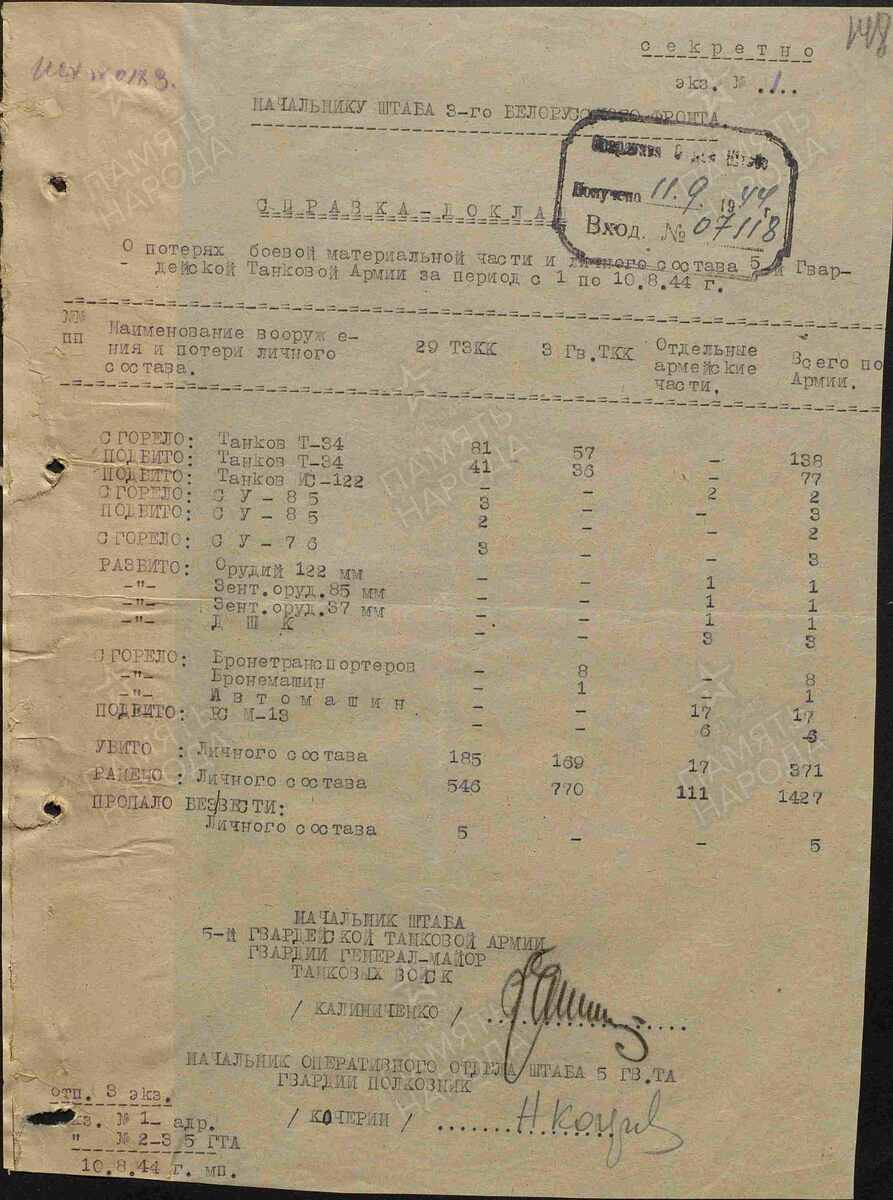 148
секретно
экз. № .1..
исх № 0183.
НАЧАЛЬНИКУ ШТАБА 3-го БЕЛОРУССКОГО ФРОНТА.
Получено 11.9 1944 г.
Вход. № 07118
СПРАВКА-ДОКЛАД
О потерях боевой материальной части и личного состава 5-й Гвар-
дейской Танковой Армии за период с 1 по 10.8.44 г.
№№ пп Наименование вооруже- 29 ТЗКК 3 Гв.ТКК Отдельные Всего по
ния и потери личного армейские Армии.
состава. части.
СГОРЕЛО: Танков Т-34 81 57 - 138
ПОДБИТО: Танков Т-34 41 36 - 77
ПОДБИТО: Танков ИС-122 - - 2 2
СГОРЕЛО: СУ-85 3 - - 3
ПОДБИТО: СУ-85 2 - - 2
СГОРЕЛО: СУ-76 3 - - 3
РАЗБИТО: Орудий 122 мм - - 1 1
-"- Зент.оруд.85 мм - - 1 1
-"- Зент.оруд.37 мм - - 1 1
-"- ДШК - - 3 3
СГОРЕЛО: Бронетранспортеров - 8 - 8
-"- Бронемашин - 1 - 1
-"- Автомашин - - 17 17
ПОДБИТО: М-13 - - 6 6
УБИТО : Личного состава 185 169 17 371
РАНЕНО : Личного состава 546 770 111 1427
ПРОПАЛО БЕЗ/ВЕСТИ:
Личного состава 5 - - 5
НАЧАЛЬНИК ШТАБА
5-Й ГВАРДЕЙСКОЙ ТАНКОВОЙ АРМИИ
ГВАРДИИ ГЕНЕРАЛ-МАЙОР
ТАНКОВЫХ ВОЙСК
/ КАЛИНИЧЕНКО /
НАЧАЛЬНИК ОПЕРАТИВНОГО ОТДЕЛА ШТАБА 5 ГВ.ТА
ГВАРДИИ ПОЛКОВНИК
/ КОЧЕРИН /
отп. 3 экз.
кз. № 1- адр.
" № 2-3 5 ГТА
10.8.44 г. мп.
ПАМЯТЬ НАРОДА
ПАМЯТЬ НАРОДА
ПАМЯТЬ НАРОДА
ПАМЯТЬ НАРОДА
ПАМЯТЬ НАРОДА